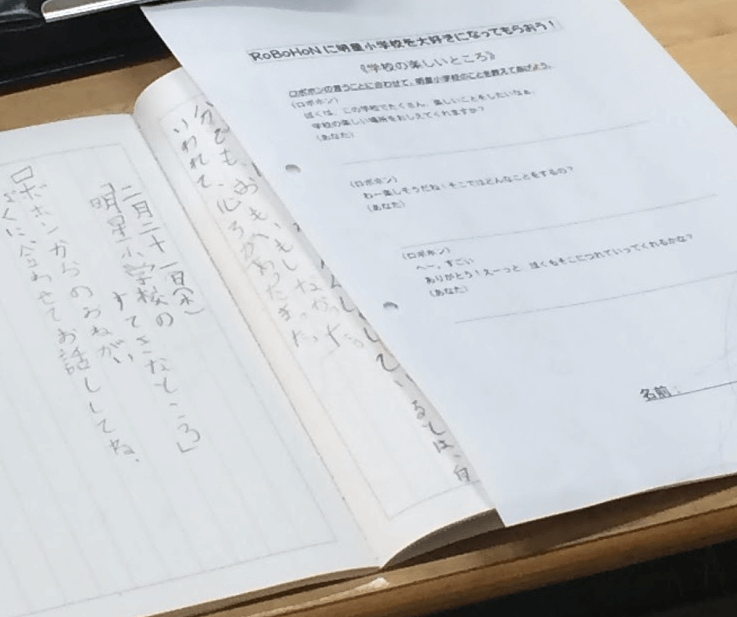 RoBoHoNに明星小学校を大好きになってもらおう！
《学校の楽しいところ》
ロボホンの言うことに合わせて、明星小学校のことを教えてあげよう。
（ロボホン）
ぼくは、この学校でたくさん、楽しいことをしたいなぁ。
学校の楽しい場所をおしえてくれますか？
（あなた）
（ロボホン）
わー楽しそうだね！そこではどんなことをするの？
（あなた）
（ロボホン）
へー、すごい
ありがとう！えーっと、ぼくもそこにつれていってくれるかな？
（あなた）
名前：
しているとは、自
分でも、おもいもしなかった
いわれて、心
二月二十一日(水)
「明星小学校の
すてきなところ」
ロボホンからのおねがい
ぼくに合わせてお話ししてね。